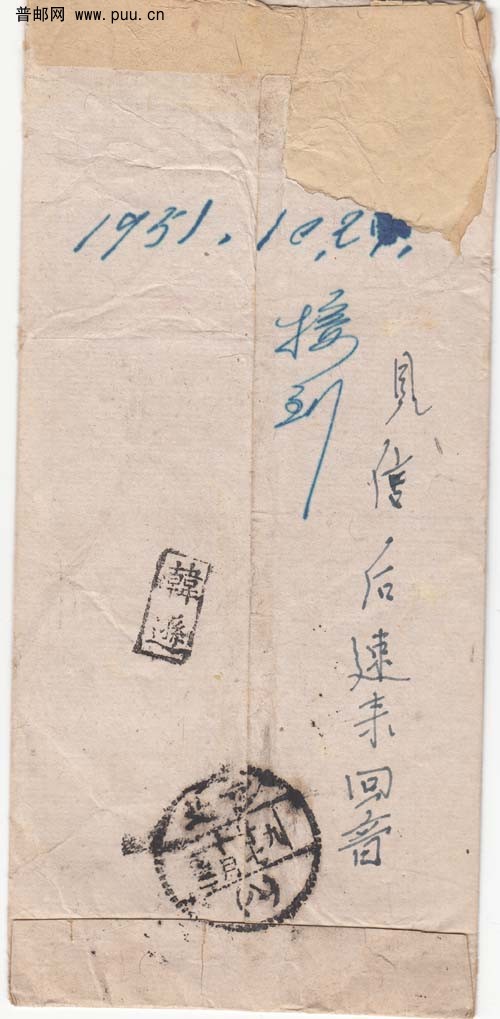 普邮网 www.puu.cn
1951.10.2
接到
见信后速来回音
韓遜